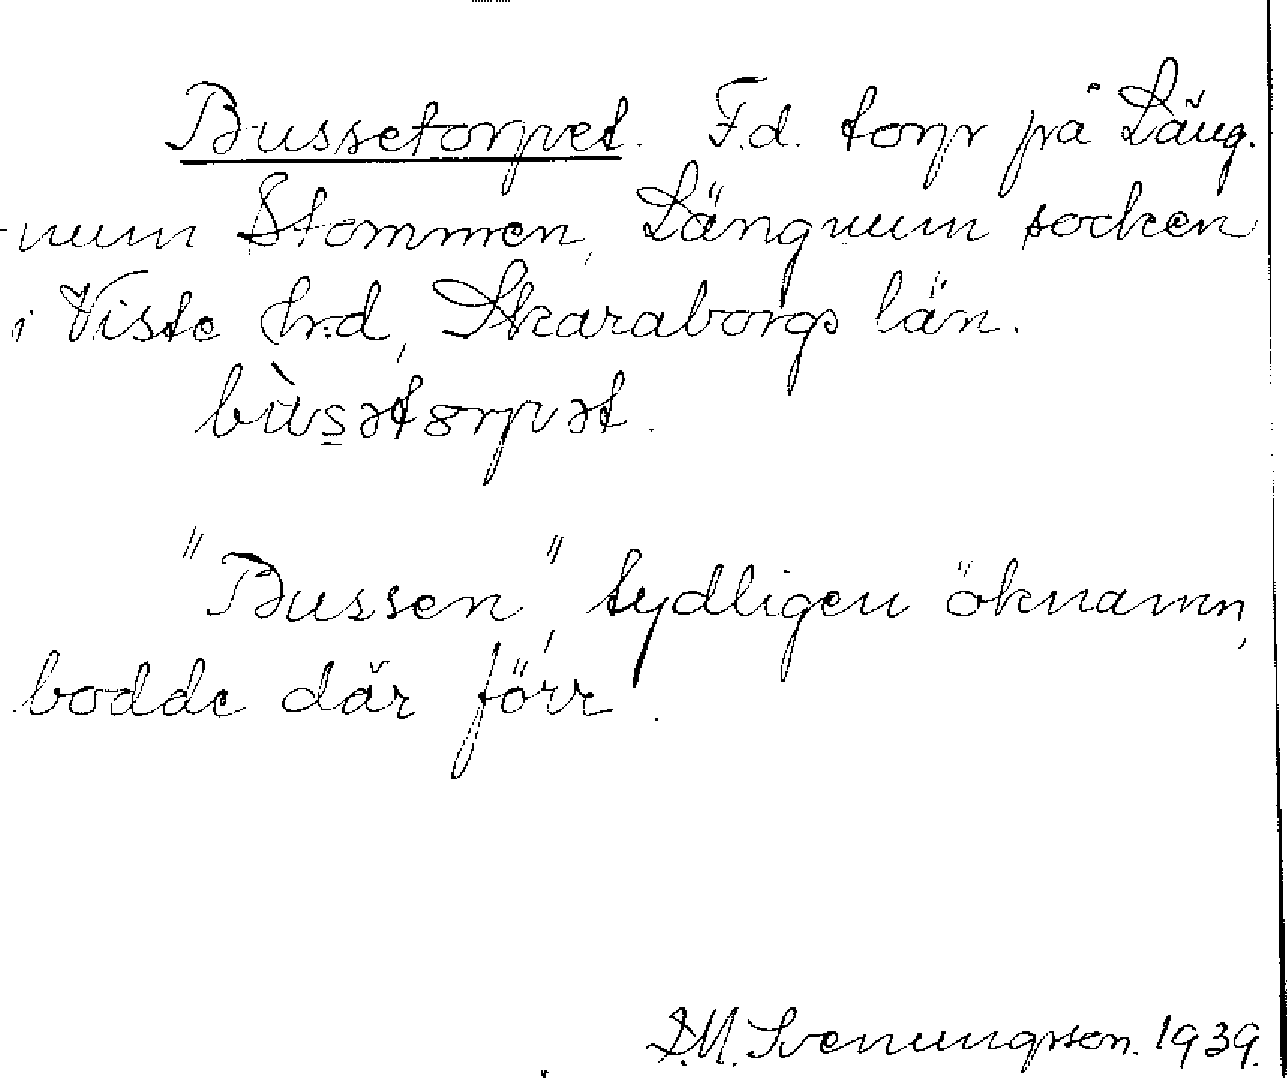 Bussetorpet. F.d. torp på Läng-
num Stommen, Längnum socken
i Viste hrd, Skaraborgs län.
bùsətorpət.
"Bussen", tydligen öknamn,
bodde där förr.
D.M. Svenungsson. 1939.